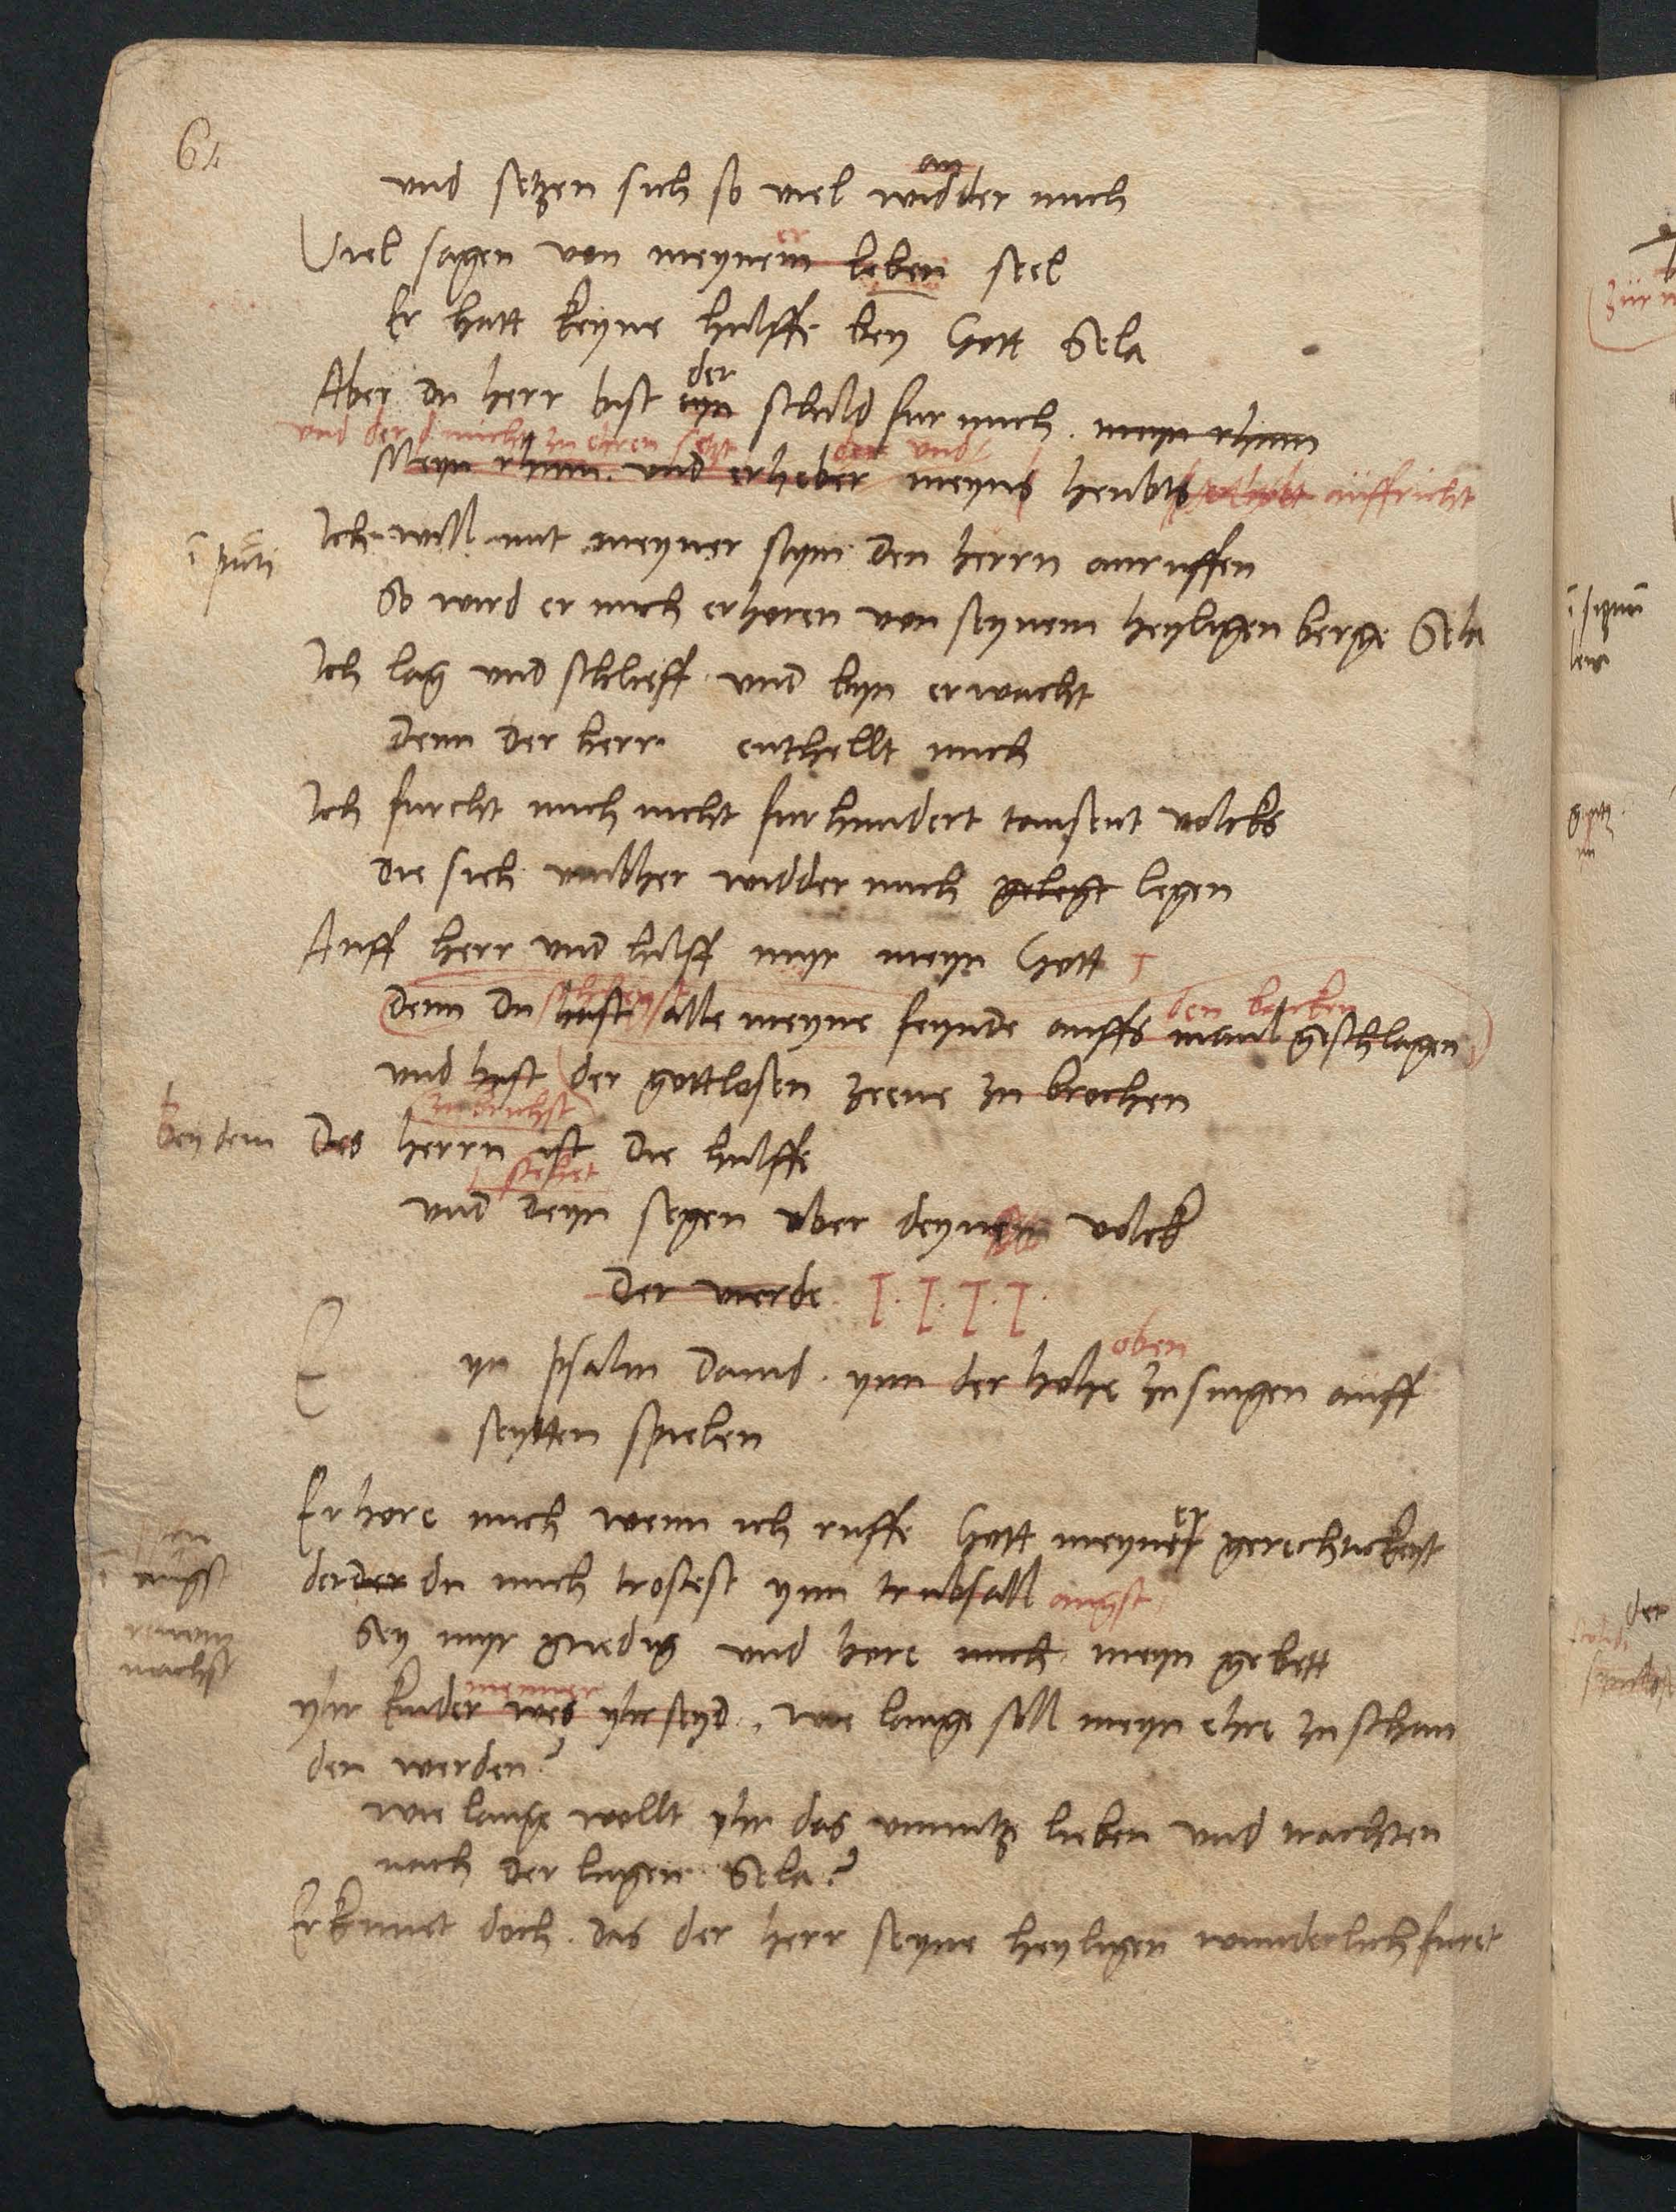 64
an
und setzen sich so viel widder mich
er
Viel sagen von meynem leben seel
Er hatt keyne hulffe bey Gott Sela
der
Aber du herr bist eyn schild fur mich. meyn rhum
und der mich zu ehren setzt und
Meyn rhum. und erheber meyns heubts auffricht
Ich will mit meyner stym den herrn anruffen
So wird er mich erhoren von seynem heyligen berge Sela
Ich lag und schlieff und byn erwacht
denn der herr enthellt mich
Ich furcht mich nicht fur hundert tausent volcks
die sich umbher widder mich gelegt legen
Auff herr und hilff myr meyn Gott
den backen
denn du hast alle meyne feynde auffs maul geschlagen
und hast der gottlosen zeene zu brochen
zubrichst
bey dem Des herrn ist die hulffe
und deyn segen uber deynem volck
der vierde I.I.I.I.
oben
Eyn psalm David. ynn der hohe zu singen auff
seytten spielen
er
Erhore mich wenn ich ruffe Gott meyner gerechtickeyt
der der du mich trostest ynn trubsall angst
Sey myr gnedig und hore mich meyn gebett
menner
yhr kinder wes yhr seyd. wie lange soll meyn ehre zu schan
den werden?
wie lange wollt yhr das unnutz lieben und trachten
nach der lugen Sela?
Erkennet doch. das der herr seyne heyligen wunderlich furet